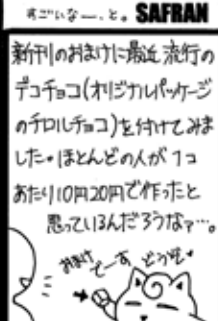 すごいなー、と。 SAFRAN
新刊のおまけに最近流行の
デコチョコ(オリジナルパッケージ
のチロルチョコ)を付けてみま
した。ほとんどの人が1コ
あたり10円20円で作ったと
思っているんだろうなァ…。
おまけ
でーす
どうぞ